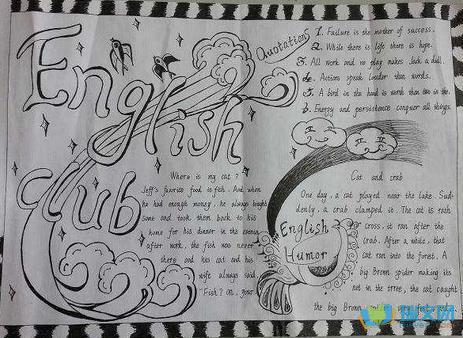 English
Club
Quotations
1. Failure is the mother of success.
2. While there is life there is hope.
3. All work and no play makes Jack a dull.
4. Actions speak louder than words.
5. A bird in the hand is worth than two in the
6. Energy and persistence conquer all things.
Where is my cat?
Jeff's favorite food is fish. And when
he had enough money, he always bought
some and took them back to his
home for his dinner in the evening
after work, the fish was never
there and his cat and his
wife always said,
"Fish?
English
Humor
Cat and crab
One day, a cat played near the lake. Sud-
denly, a crab clamped it. The cat is rath
cross, it ran after the
crab. After a while, that
cat ran into the forest. A
big Brown spider making its
net in the tree, the cat caught
the big Brown
瑞文网